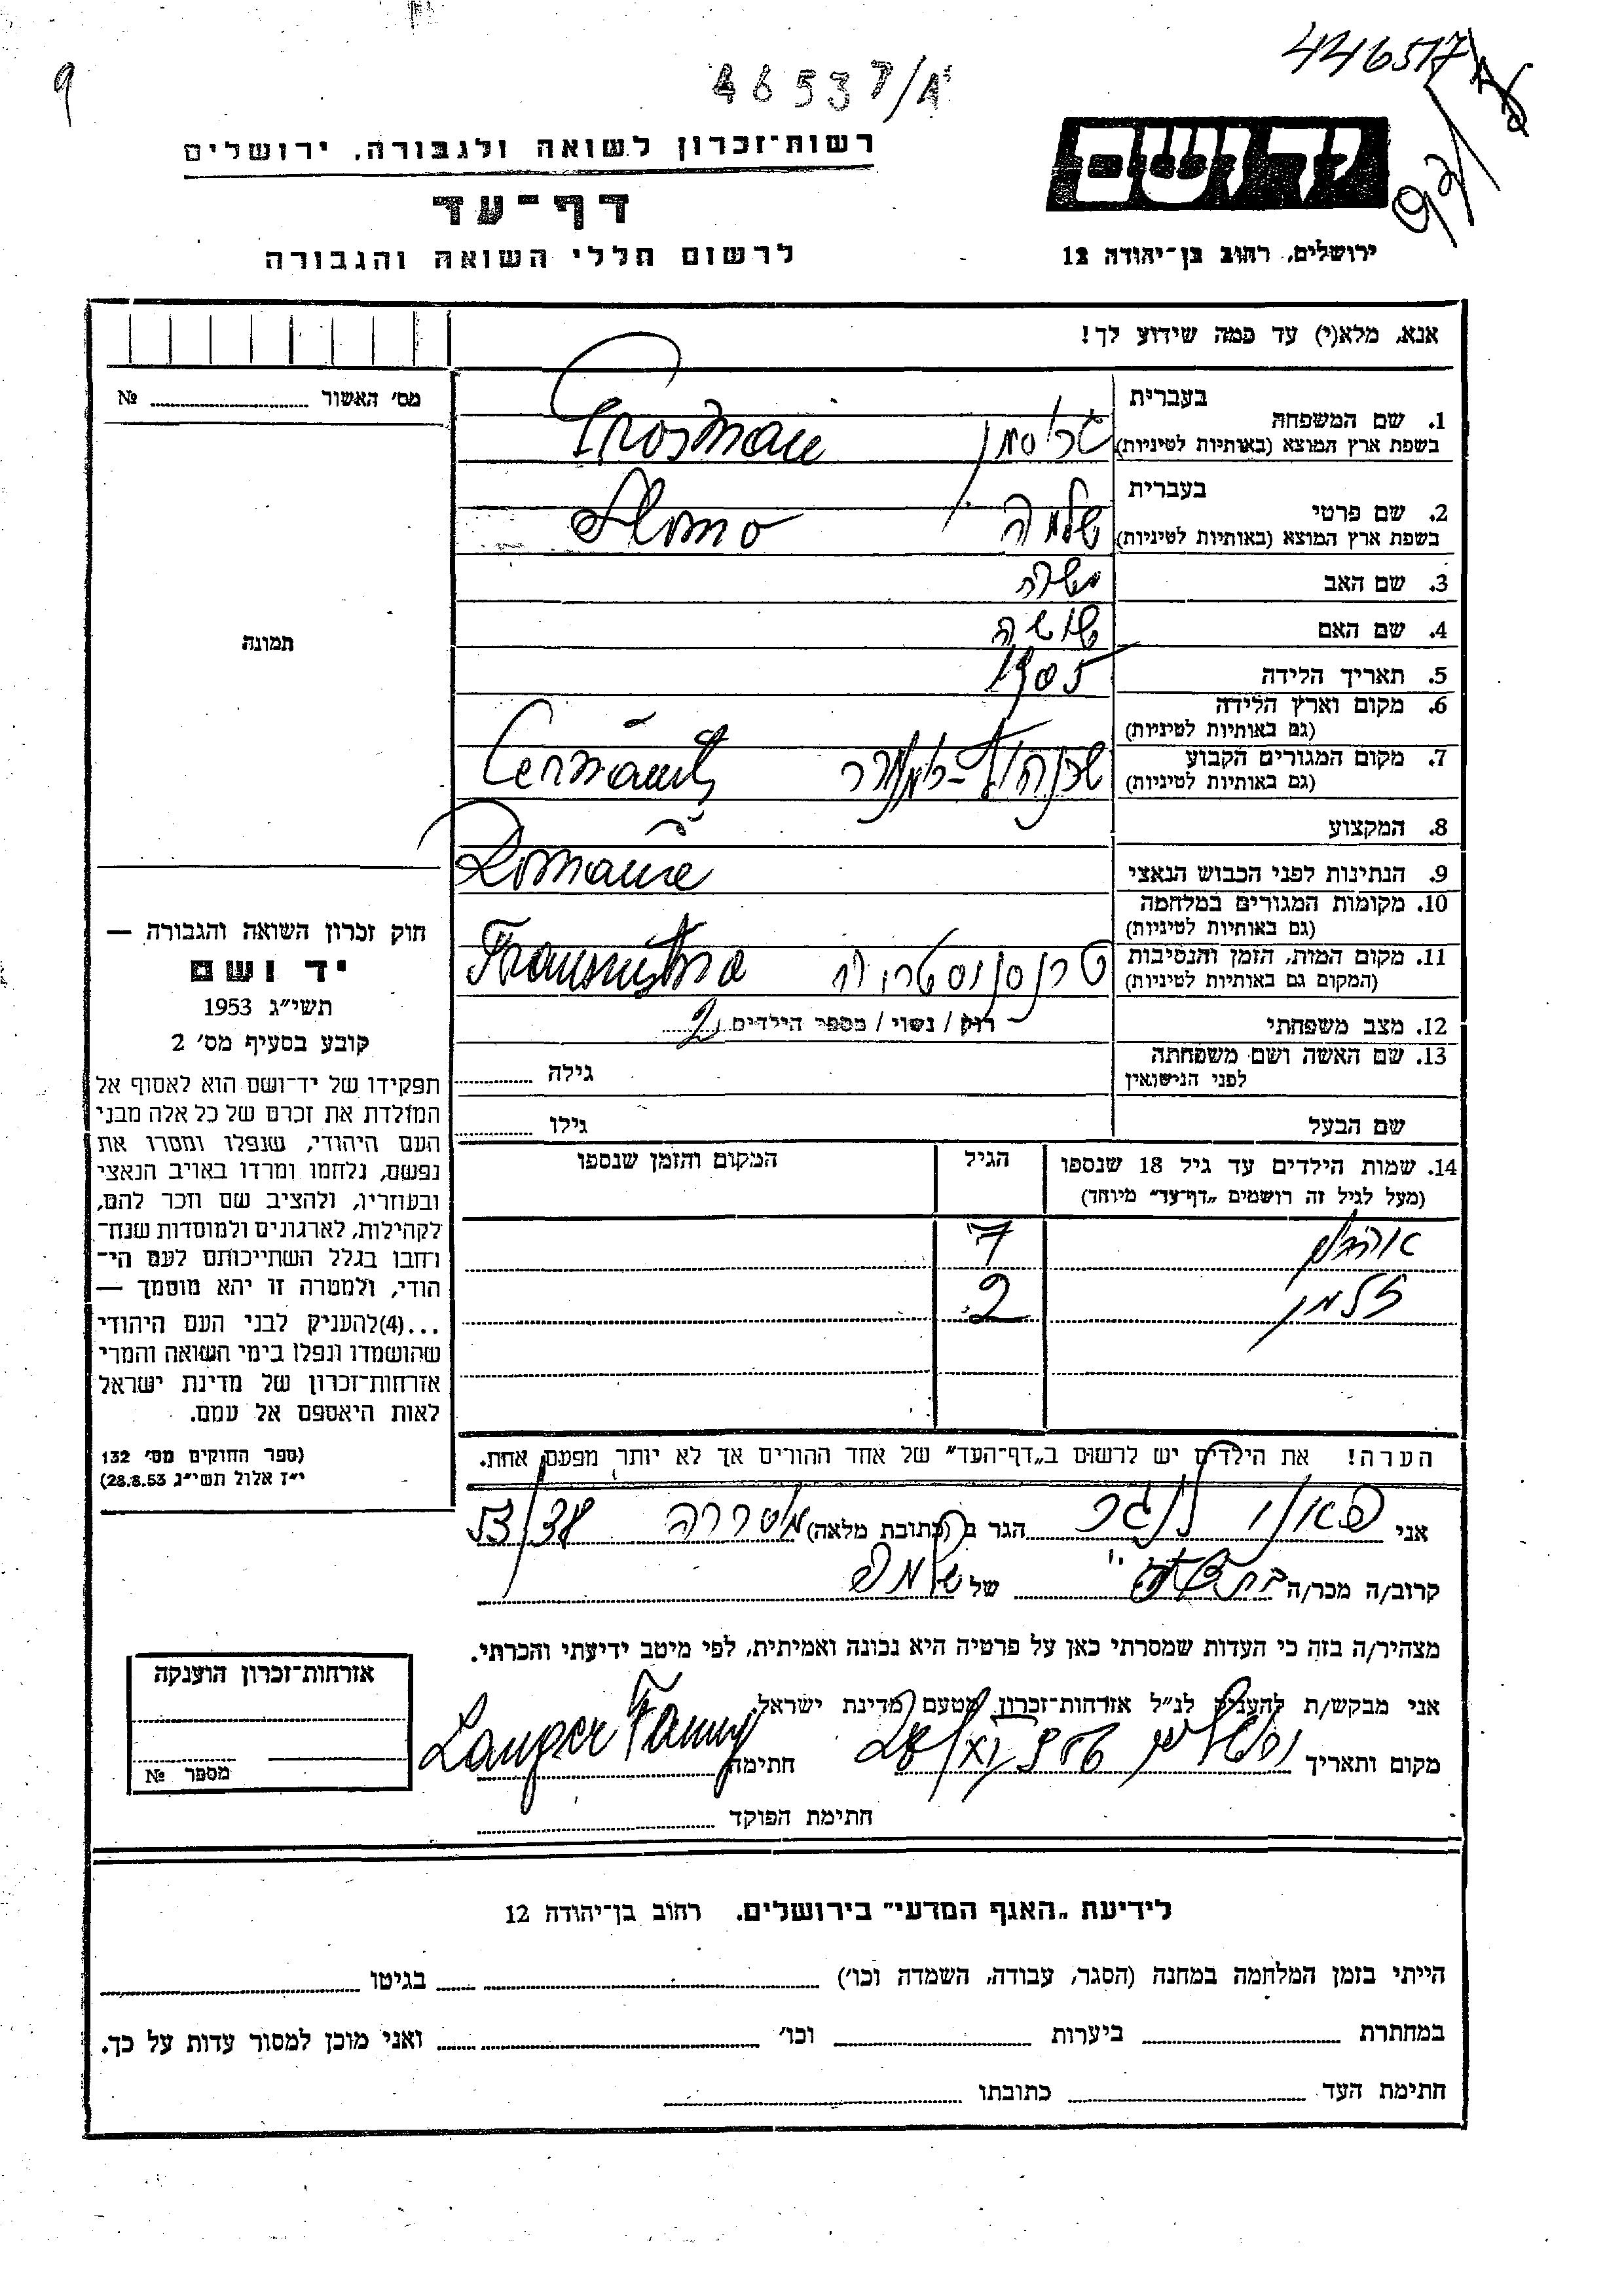 446517
9
46537/A
92/
יד ושם
רשות־זכרון לשואה ולגבורה, ירושלים
דף־עד
לרשום חללי השואה והגבורה
ירושלים, רחוב בן־יהודה 12
אנא, מלא(י) עד כמה שידוע לך!
מס' האשור № 
בעברית
1. שם המשפחה
בשפת ארץ המוצא (באותיות לטיניות)
בעברית
2. שם פרטי שלמה Slomo
בשפת ארץ המוצא (באותיות לטיניות)
3. שם האב משה
4. שם האם שושה
5. תאריך הלידה 1905
6. מקום וארץ הלידה
(גם באותיות לטיניות)
7. מקום המגורים הקבוע Cernăuți
(גם באותיות לטיניות)
8. המקצוע
9. הנתינות לפני הכבוש הנאצי
10. מקומות המגורים במלחמה
(גם באותיות לטיניות)
11. מקום המות, הזמן והנסיבות טרנסניסטריה Transnistria
(המקום גם באותיות לטיניות)
12. מצב משפחתי רוק / נשוי / מספר הילדים 2
13. שם האשה ושם משפחתה
לפני הנישואין גילה
שם הבעל גילו
14. שמות הילדים עד גיל 18 שנספו הגיל המקום והזמן שנספו
(מעל לגיל זה רושמים „דף־עד" מיוחד)
7
זלמן 2
הערה! את הילדים יש לרשום ב„דף־העד" של אחד ההורים אך לא יותר מפעם אחת.
תמונה
חוק זכרון השואה והגבורה —
יד ושם
תשי"ג 1953
קובע בסעיף מס' 2
תפקידו של יד־ושם הוא לאסוף אל
המולדת את זכרם של כל אלה מבני
העם היהודי, שנפלו ומסרו את
נפשם, נלחמו ומרדו באויב הנאצי
ובעוזריו, ולהציב שם וזכר להם,
לקהילות, לארגונים ולמוסדות שנח־
רחבו בגלל השתייכותם לעם הי־
הודי, ולמטרה זו יהא מוסמך —
...(4)להעניק לבני העם היהודי
שהושמדו ונפלו בימי השואה והמרי
אזרחות־זכרון של מדינת ישראל
לאות היאספם אל עמם.
(ספר החוקים מס' 132
י"ז אלול תשי"ג 28.8.53)
אני פאני לנגר הגר ב (כתובת מלאה)
קרוב/ה מכר/ה של שלמה
מצהיר/ה בזה כי העדות שמסרתי כאן על פרטיה היא נכונה ואמיתית, לפי מיטב ידיעתי והכרתי.
אני מבקש/ת להעניק לנ"ל אזרחות־זכרון מטעם מדינת ישראל
מקום ותאריך חתימה Langer Fanny
חתימת הפוקד
אזרחות־זכרון הוענקה
מספר №
לידיעת „האגף המדעי" בירושלים, רחוב בן־יהודה 12
הייתי בזמן המלחמה במחנה (הסגר, עבודה, השמדה וכו') בגיטו
במחתרת ביערות וכו' ואני מוכן למסור עדות על כך.
חתימת העד כתובתו